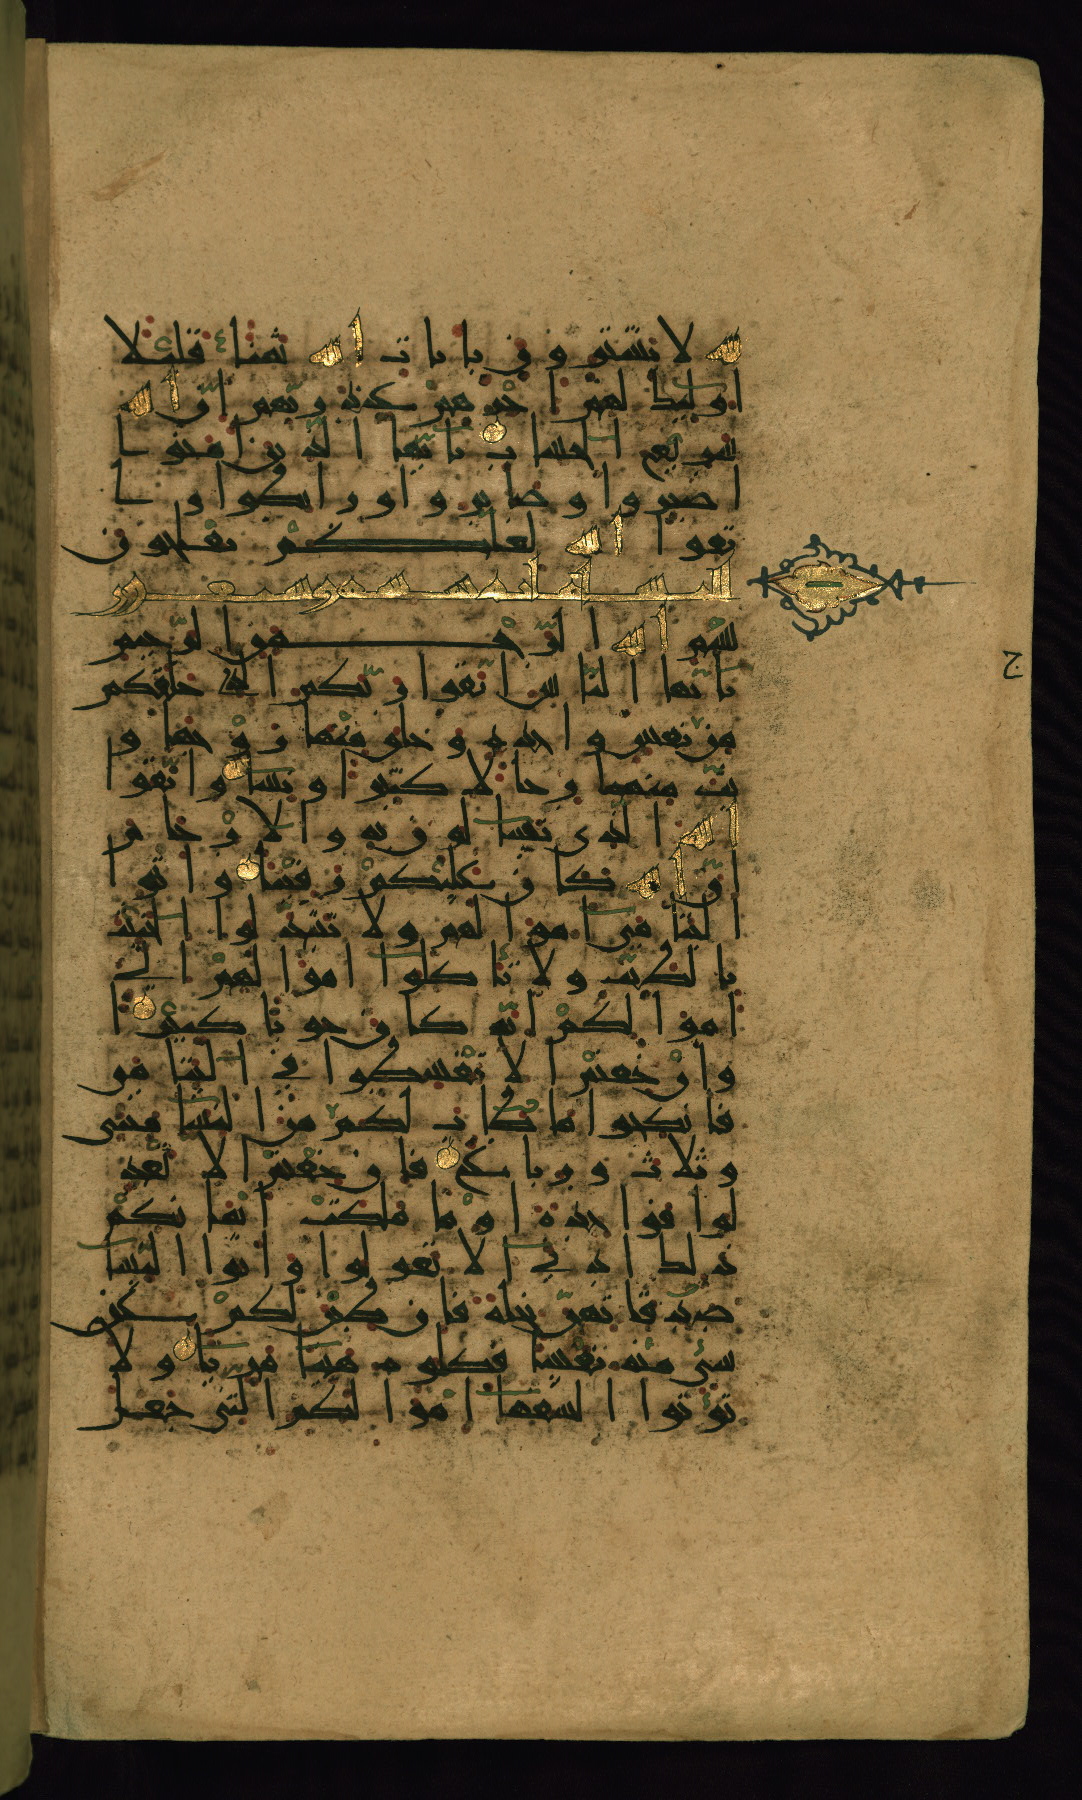 لله لا يشترون بايات الله ثمنا قليلا
اوليك لهم اجرهم عند ربهم ان الله
سريع الحساب يايها الذين امنوا
اصبروا وصابروا ورابطوا وا
تقوا الله لعلكم تفلحون
النسا
بسم الله الرحمن الرحيم
يايها الناس اتقوا ربكم الذي خلقكم
من نفس واحدة وخلق منها زوجها و
بث منهما رجالا كثيرا ونسا واتقوا
الله الذي تسالون به والارحام
ان الله كان عليكم رقيبا واتوا
اليتامى اموالهم ولا تتبدلوا الخبيث
بالطيب ولا تاكلوا اموالهم الى
اموالكم انه كان حوبا كبيرا
وان خفتم الا تقسطوا في اليتامى
فانكحوا ما طاب لكم من النسا مثنى
وثلاث ورباع فان خفتم الا تعد
لوا فواحدة او ما ملكت ايمانكم
ذلك ادنى الا تعولوا واتوا النسا
صدقاتهن نحلة فان طبن لكم عن
شي منه نفسا فكلوه هنيا مريا ولا
توتوا السفها اموالكم التي جعل
ج